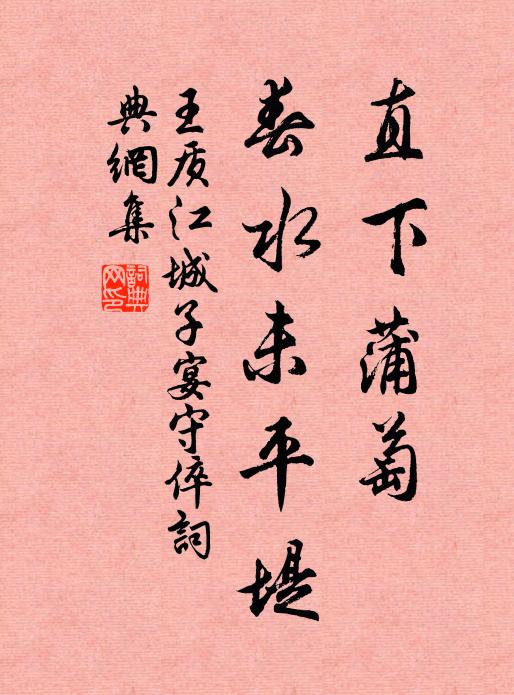 直下蒲萄
春水未平堤
王质江城子宴守倅詞
典網集
詞典网印